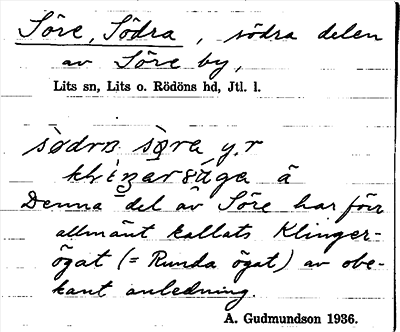 Söre, Södra, södra delen
av Söre by,
Lits sn, Lits o. Rödöns hd, Jtl. l.
södrɐ sǫra y. r
Denna del av Söre har förr
allmänt kallats Klinger-
ögat (= Runda ögat) av obe-
kant anledning.
A. Gudmundson 1936.